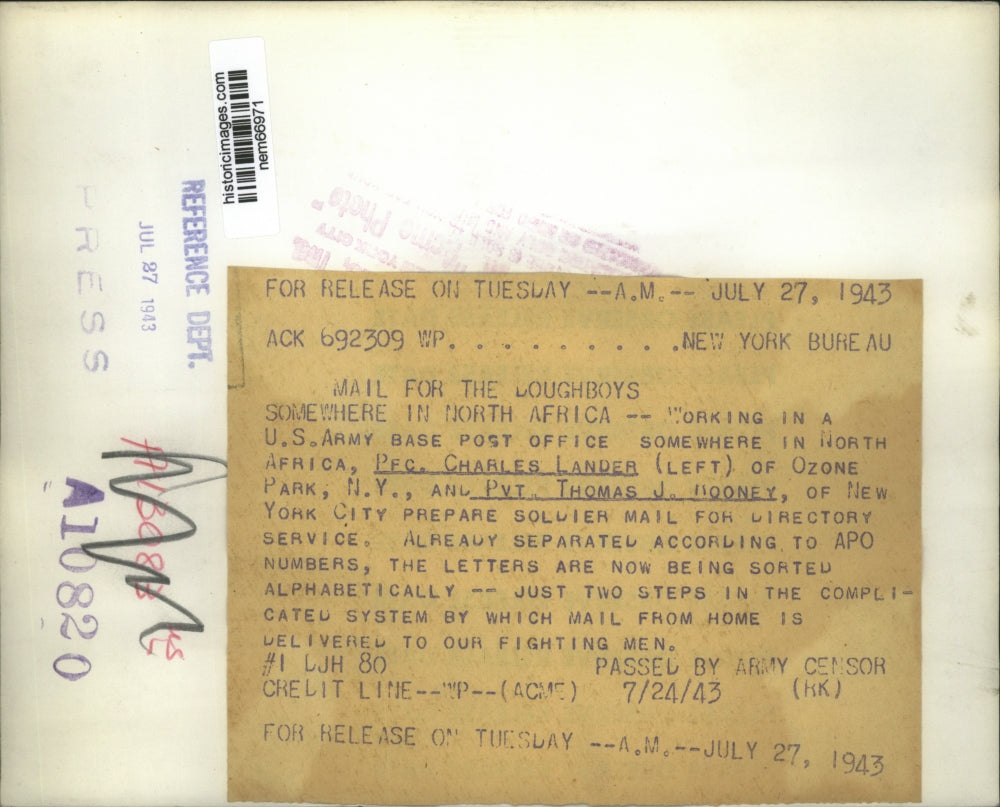 historicimages.com
nem66971
REFERENCE DEPT.
JUL 27 1943
PRESS
A10820
Acme Photo"
FOR RELEASE ON TUESDAY --A.M.-- JULY 27, 1943
ACK 692309 WP. . . . . . . . . .NEW YORK BUREAU
MAIL FOR THE DOUGHBOYS
SOMEWHERE IN NORTH AFRICA -- WORKING IN A
U.S.ARMY BASE POST OFFICE SOMEWHERE IN NORTH
AFRICA, PFC. CHARLES LANDER (LEFT) OF OZONE
PARK, N.Y., AND PVT. THOMAS J. ROONEY, OF NEW
YORK CITY PREPARE SOLDIER MAIL FOR DIRECTORY
SERVICE. ALREADY SEPARATED ACCORDING TO APO
NUMBERS, THE LETTERS ARE NOW BEING SORTED
ALPHABETICALLY -- JUST TWO STEPS IN THE COMPLI-
CATED SYSTEM BY WHICH MAIL FROM HOME IS
DELIVERED TO OUR FIGHTING MEN.
#1 DJH 80 PASSED BY ARMY CENSOR
CREDIT LINE--WP--(ACME) 7/24/43 (RK)
FOR RELEASE ON TUESDAY --A.M.--JULY 27, 1943